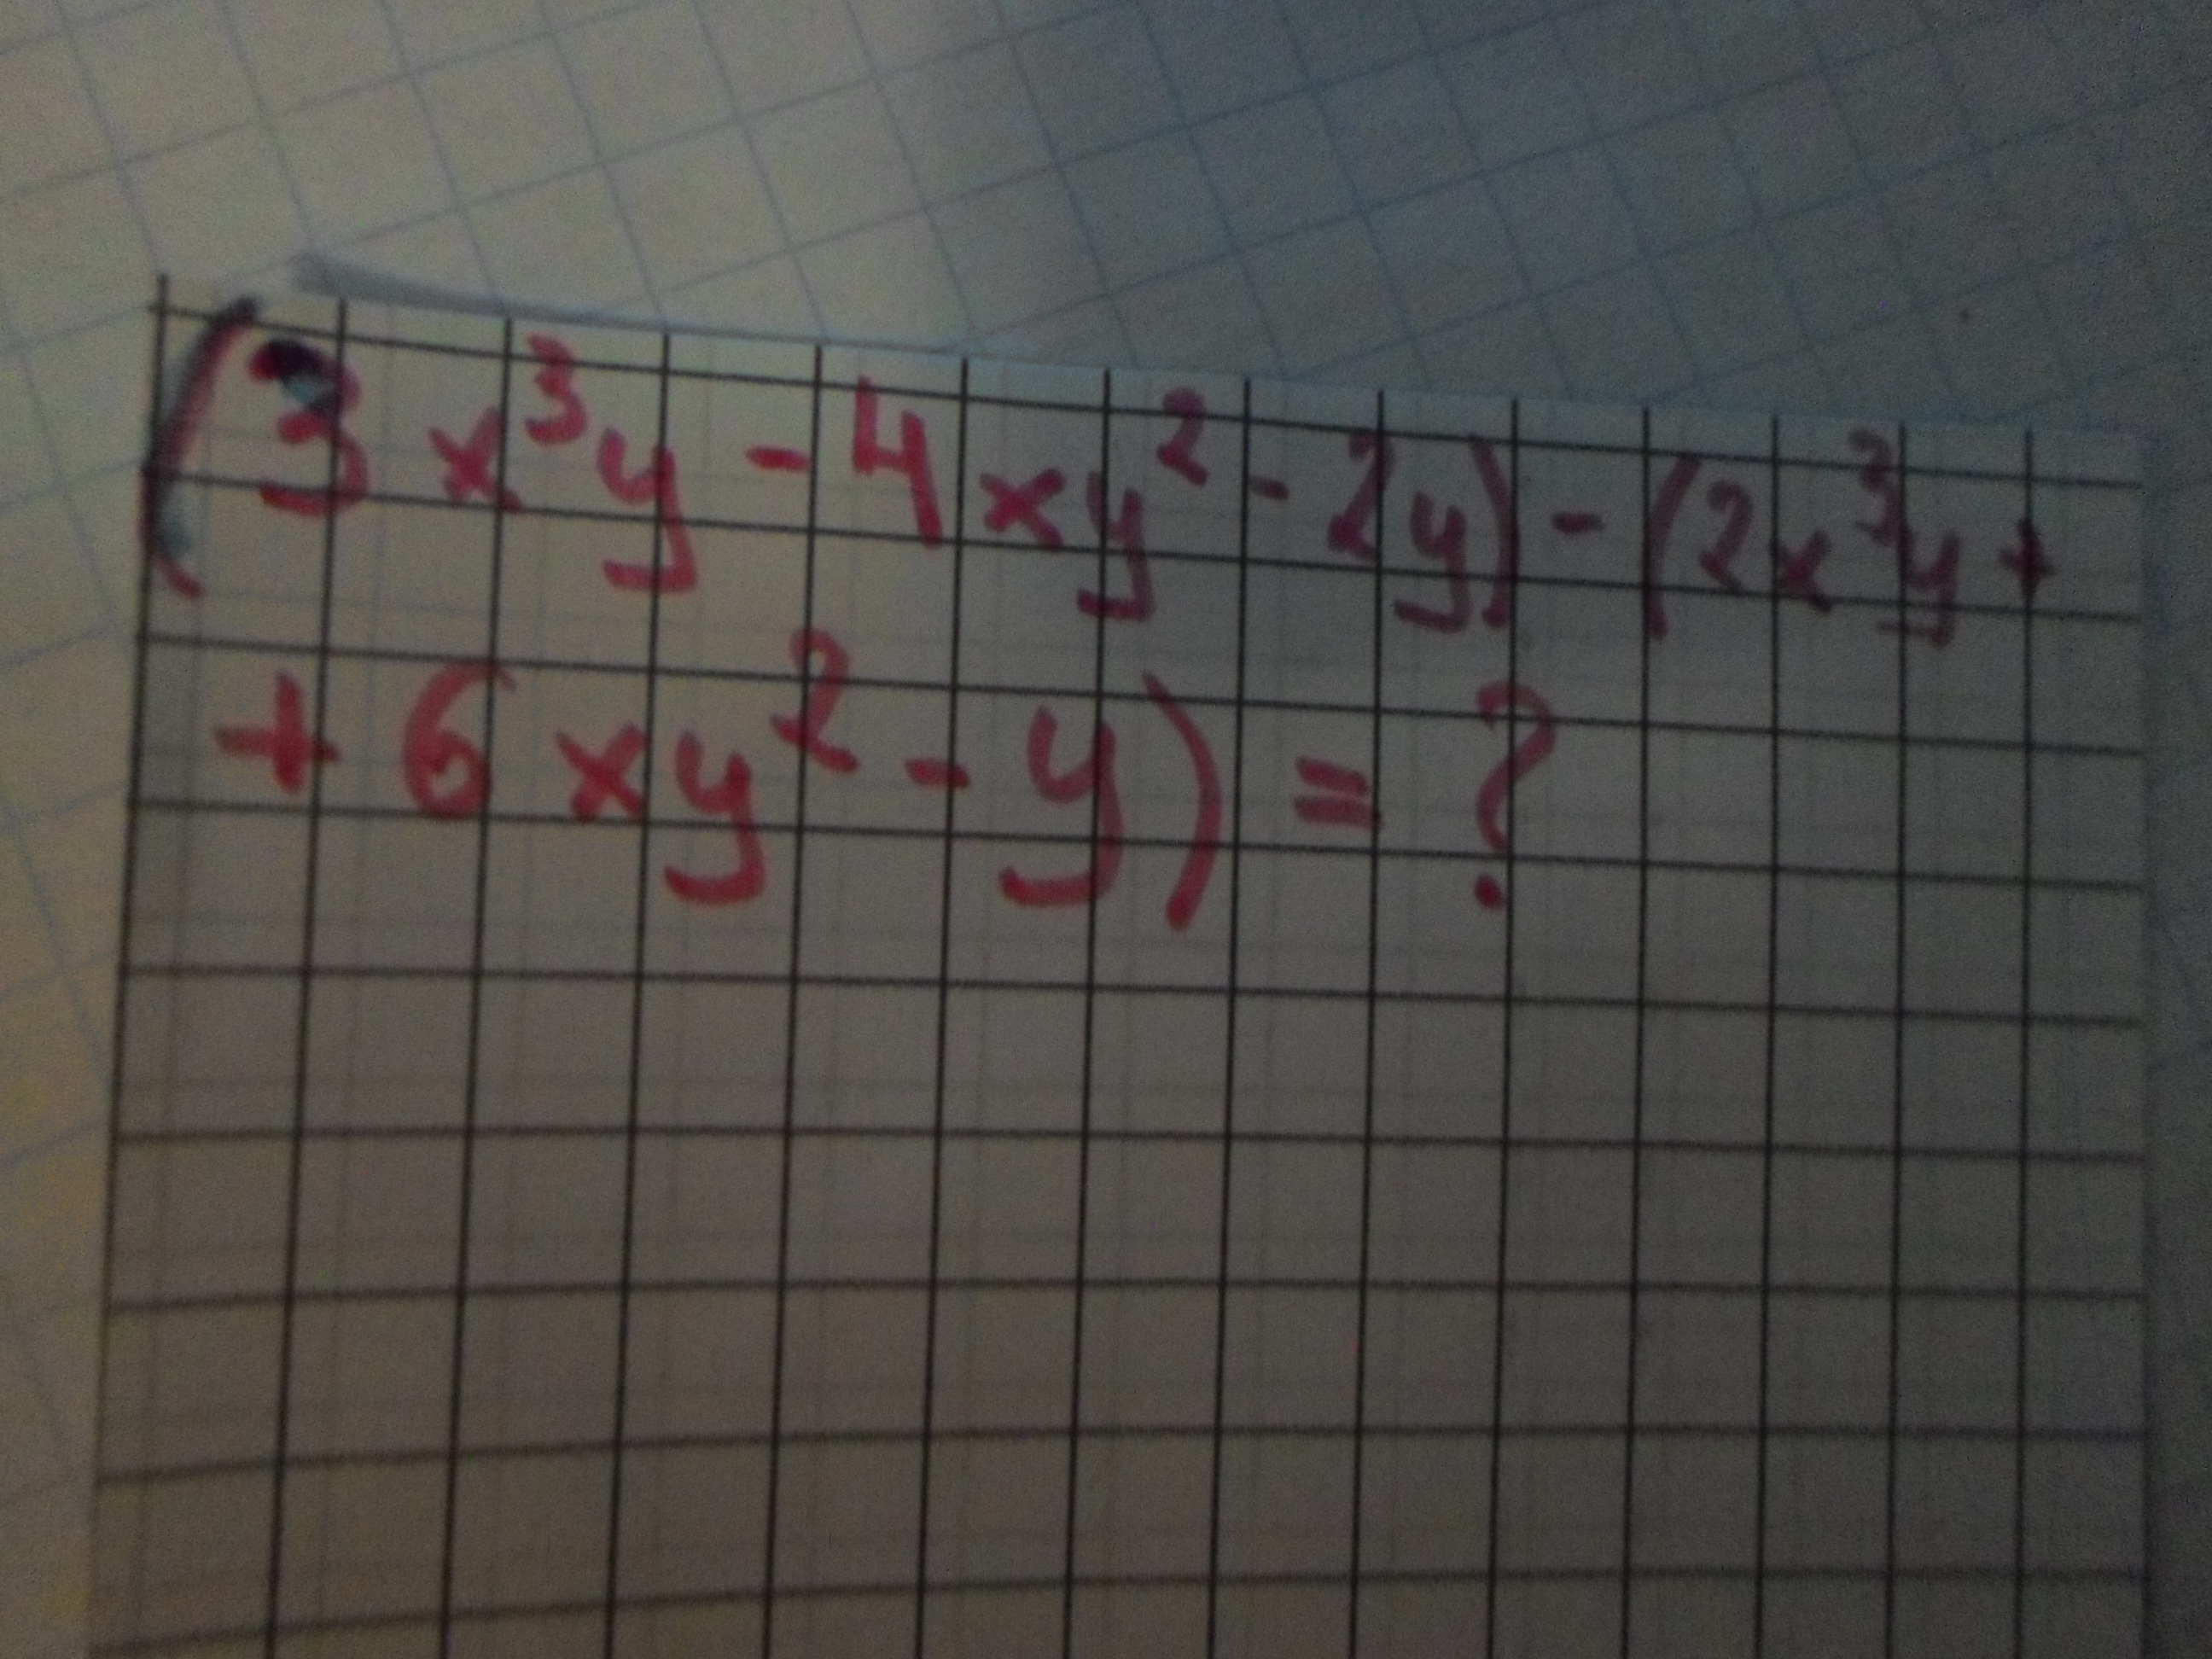 (3x³y - 4xy² - 2y) - (2x³y +
+ 6xy² - y) = ?